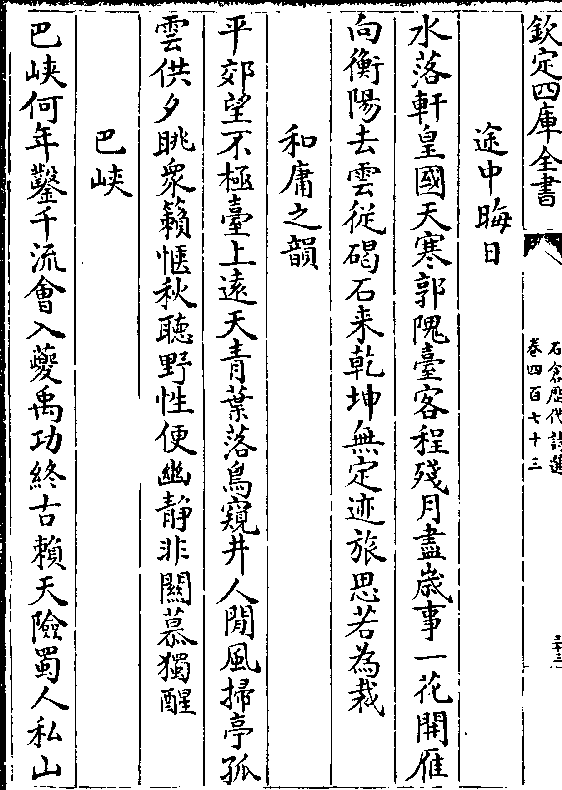 欽定四庫全書
石倉歴代詩選
卷四百七十三
途中晦日
水落軒皇國天寒郭隗臺客程殘月盡歲事一花開雁
向衡陽去雲從碣石來乾坤無定迹旅思若為裁
和庸之韻
平郊望不極臺上遠天青葉落鳥窺井人閒風掃亭孤
雲供夕眺衆籟愜秋聽野性便幽静非闗慕獨醒
巴峽
巴峽何年鑿千流會入夔禹功終古賴天險蜀人私山